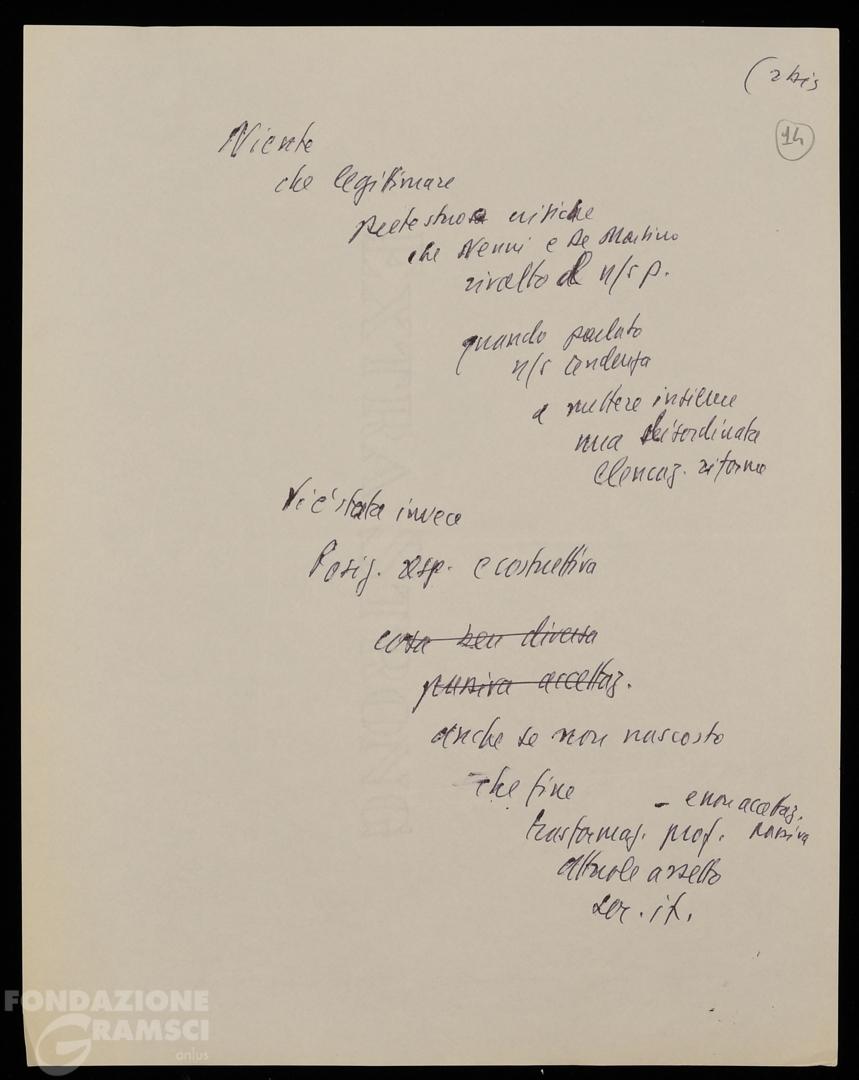 (2 bis
14
Niente
che legittimare
pretestuose critiche
che Nenni e De Martino
rivolto al n/s p.
quando parlato
n/s tendenza
a mettere insieme
una disordinata
elencaz. riforme
Vi è stata invece
Posiz. resp. e costruttiva
cosa ben diversa
passiva accettaz.
anche se non nascosto
che fine
- e non accettaz.
trasformaz. prof. passiva
attuale assetto
soc. it.
FONDAZIONE
GRAMSCI
onlus